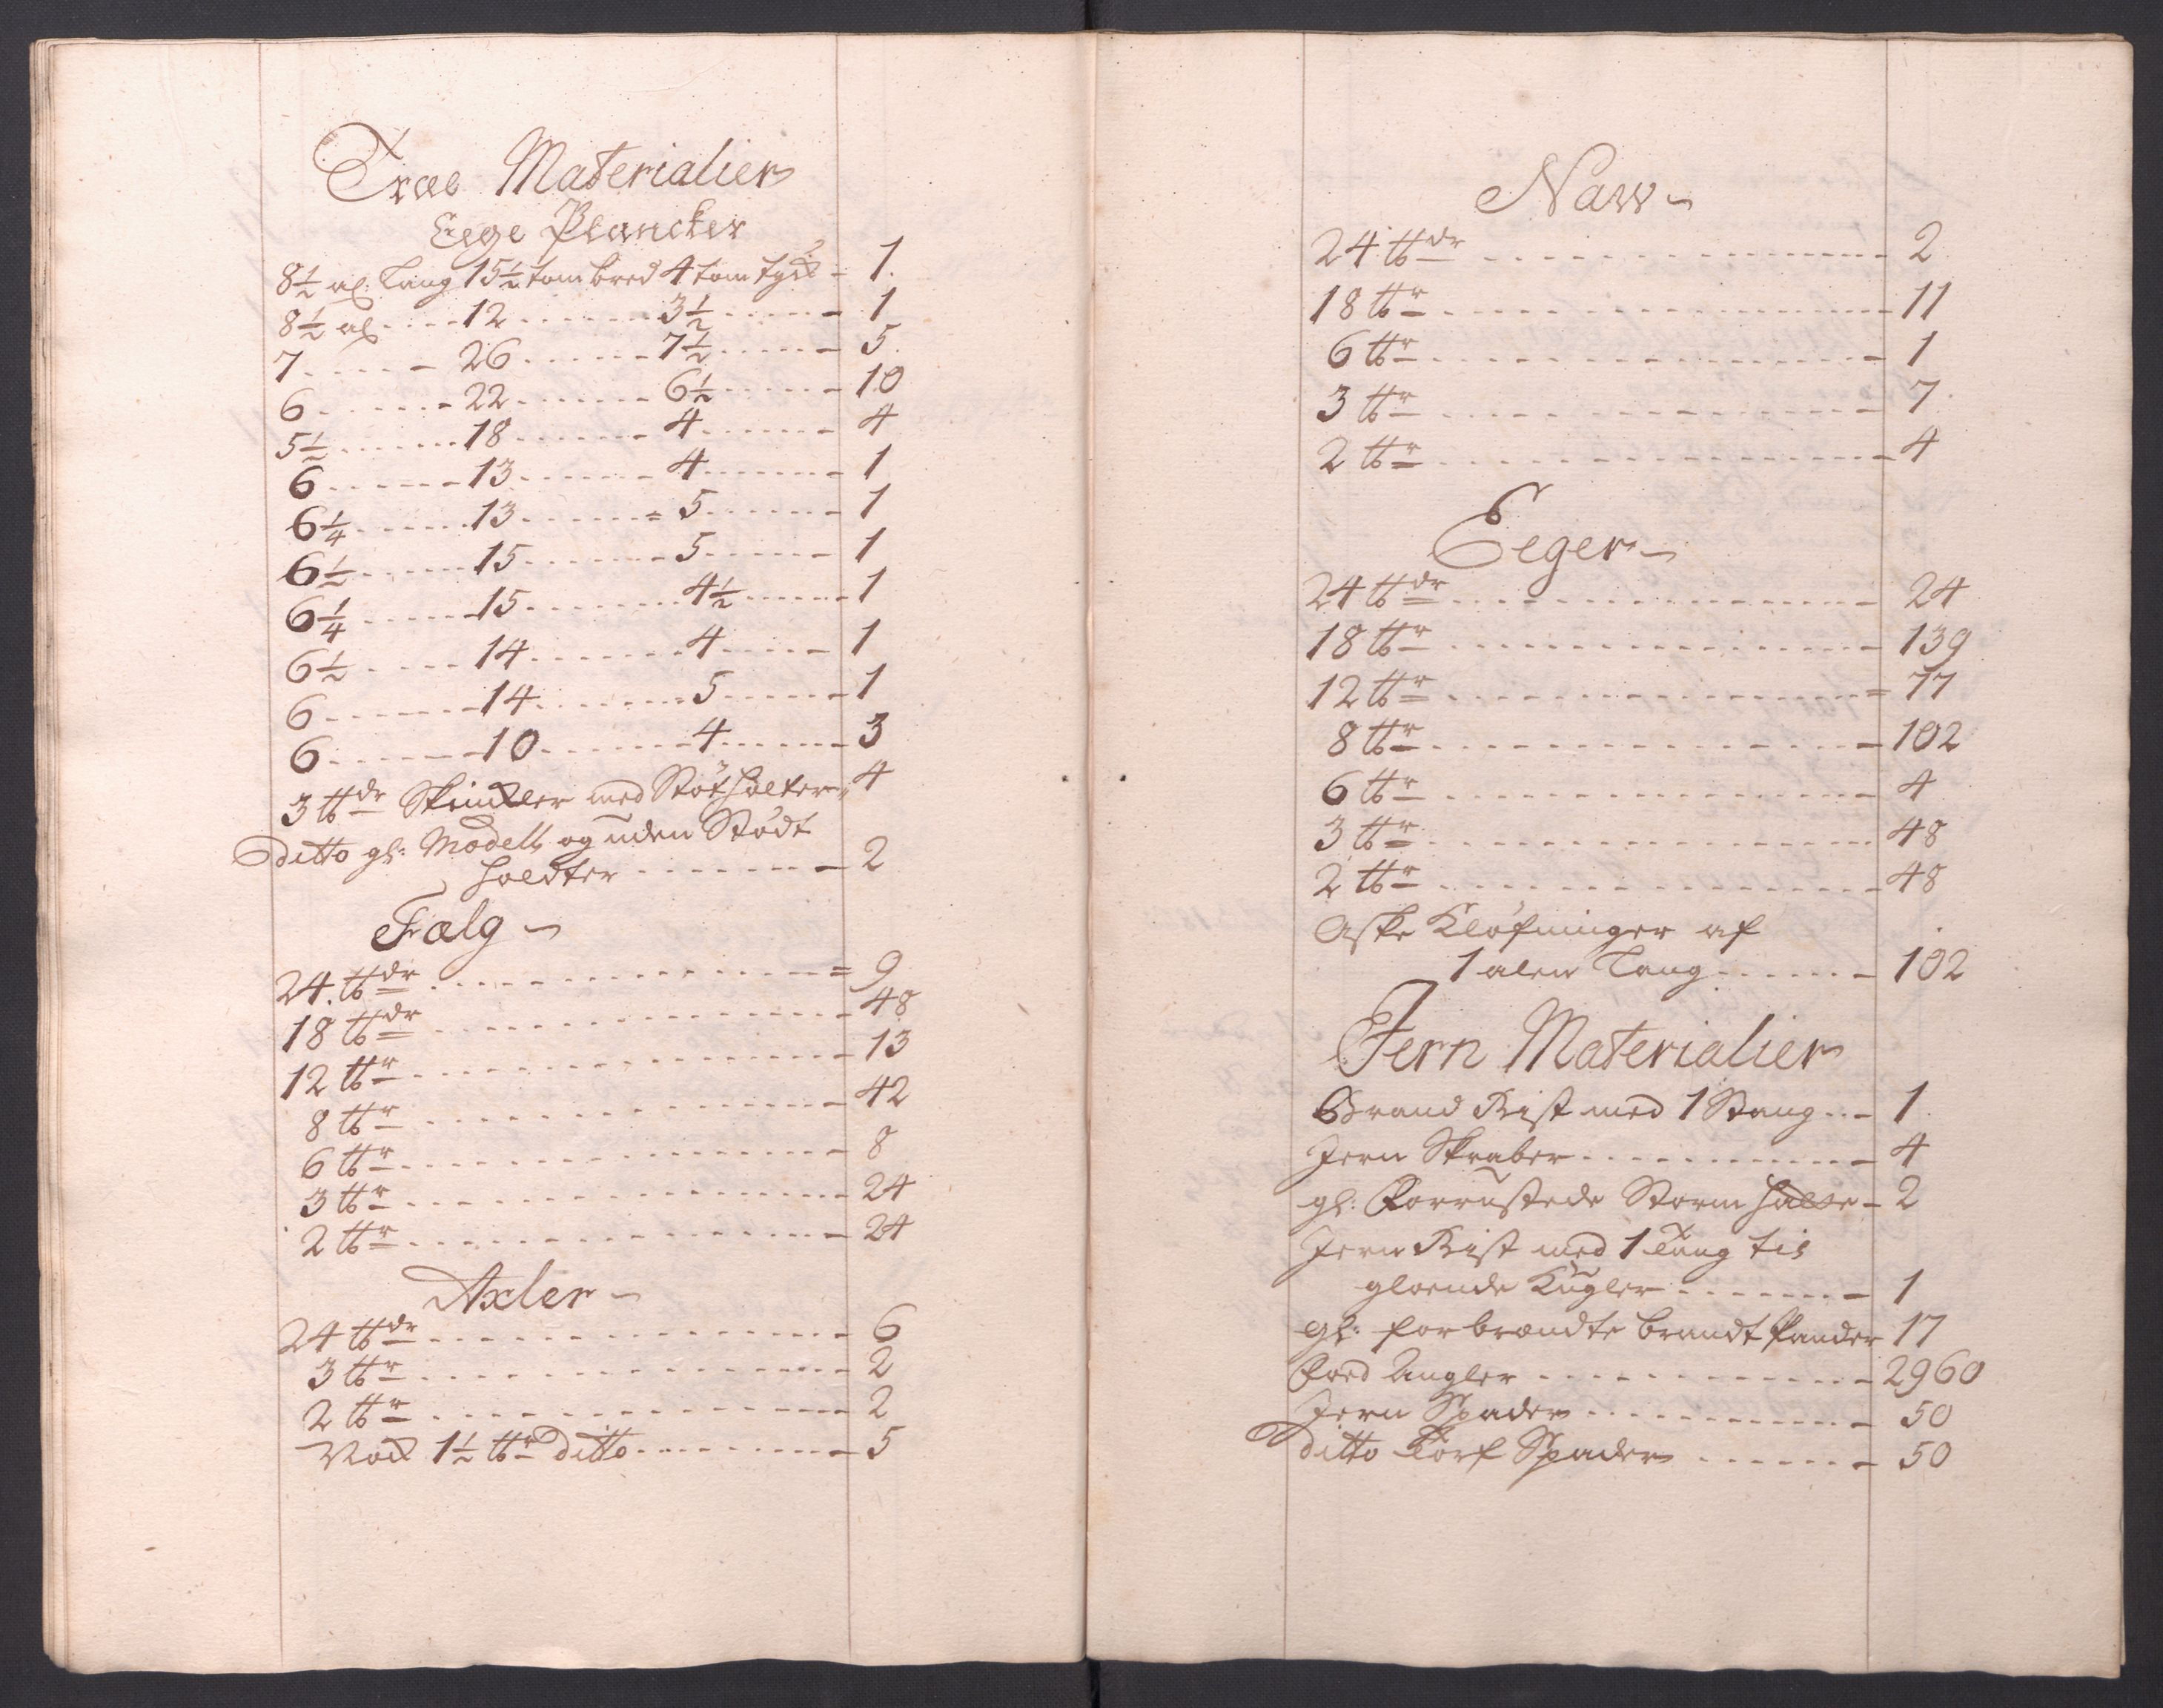 Træe Materialier
Eege Plancker
8½ al: Lang 15½ tom bred 4 tom tyck - 1.
8½ al .... 12 ....... 3½ ...... 1
7 ..... 26 ...... 7½ ...... 5.
6 ...... 22 ....... 6½ ...... 10
5½ ...... 18 ...... 4 ...... 4
6 ...... 13 ...... 4 ...... 1
6¼ ...... 13 ....... 5 ...... 1
6½ ...... 15 ...... 5 ...... 1
6¼ ..... 15 ....... 4½ ...... 1
6½ ..... 14 ....... 4 ..... 1
6 ....... 14 ....... 5 ...... 1
6 ...... 10 ....... 4 ...... 3
3 ℔dr Skinkler med Støtholter 4
ditto gl: Modell og uden Stødt
holdter ....... 2
Fælg
24. ℔dr ............ 9
18 ℔dr ............ 48
12 ℔r ............ 13
8 ℔r ............ 42
6 ℔r ............ 8
3 ℔r ............ 24
2 ℔r ............ 24
Axler
24 ℔dr ............ 6
3 ℔r ............ 2
2 ℔r ............ 2
1½ ℔r ditto ......... 5
Naw
24 ℔dr ............ 2
18 ℔r ............ 11
6 ℔r ............ 1
3 ℔r ............ 7
2 ℔r ............ 4
Eeger
24 ℔dr ............ 24
18 ℔r ............ 139
12 ℔r ............ 77
8 ℔r ............ 102
6 ℔r ............ 4
3 ℔r ............ 48
2 ℔r ............ 48
Aske Kløfninger af
1 alen Lang ...... 102
Jern Materialier
Brand Rist med 1 Stang ... 1.
Jern Skraber ........... 4
gl: Forrustede Storm - 2
Jern Rist med 1 Tang til
gloende Kugler ....... 1
gl: forbrændte brandt Pander 17
Foed Angler ........... 2960
Jern Spader ........... 50
ditto Torf Spader ....... 50